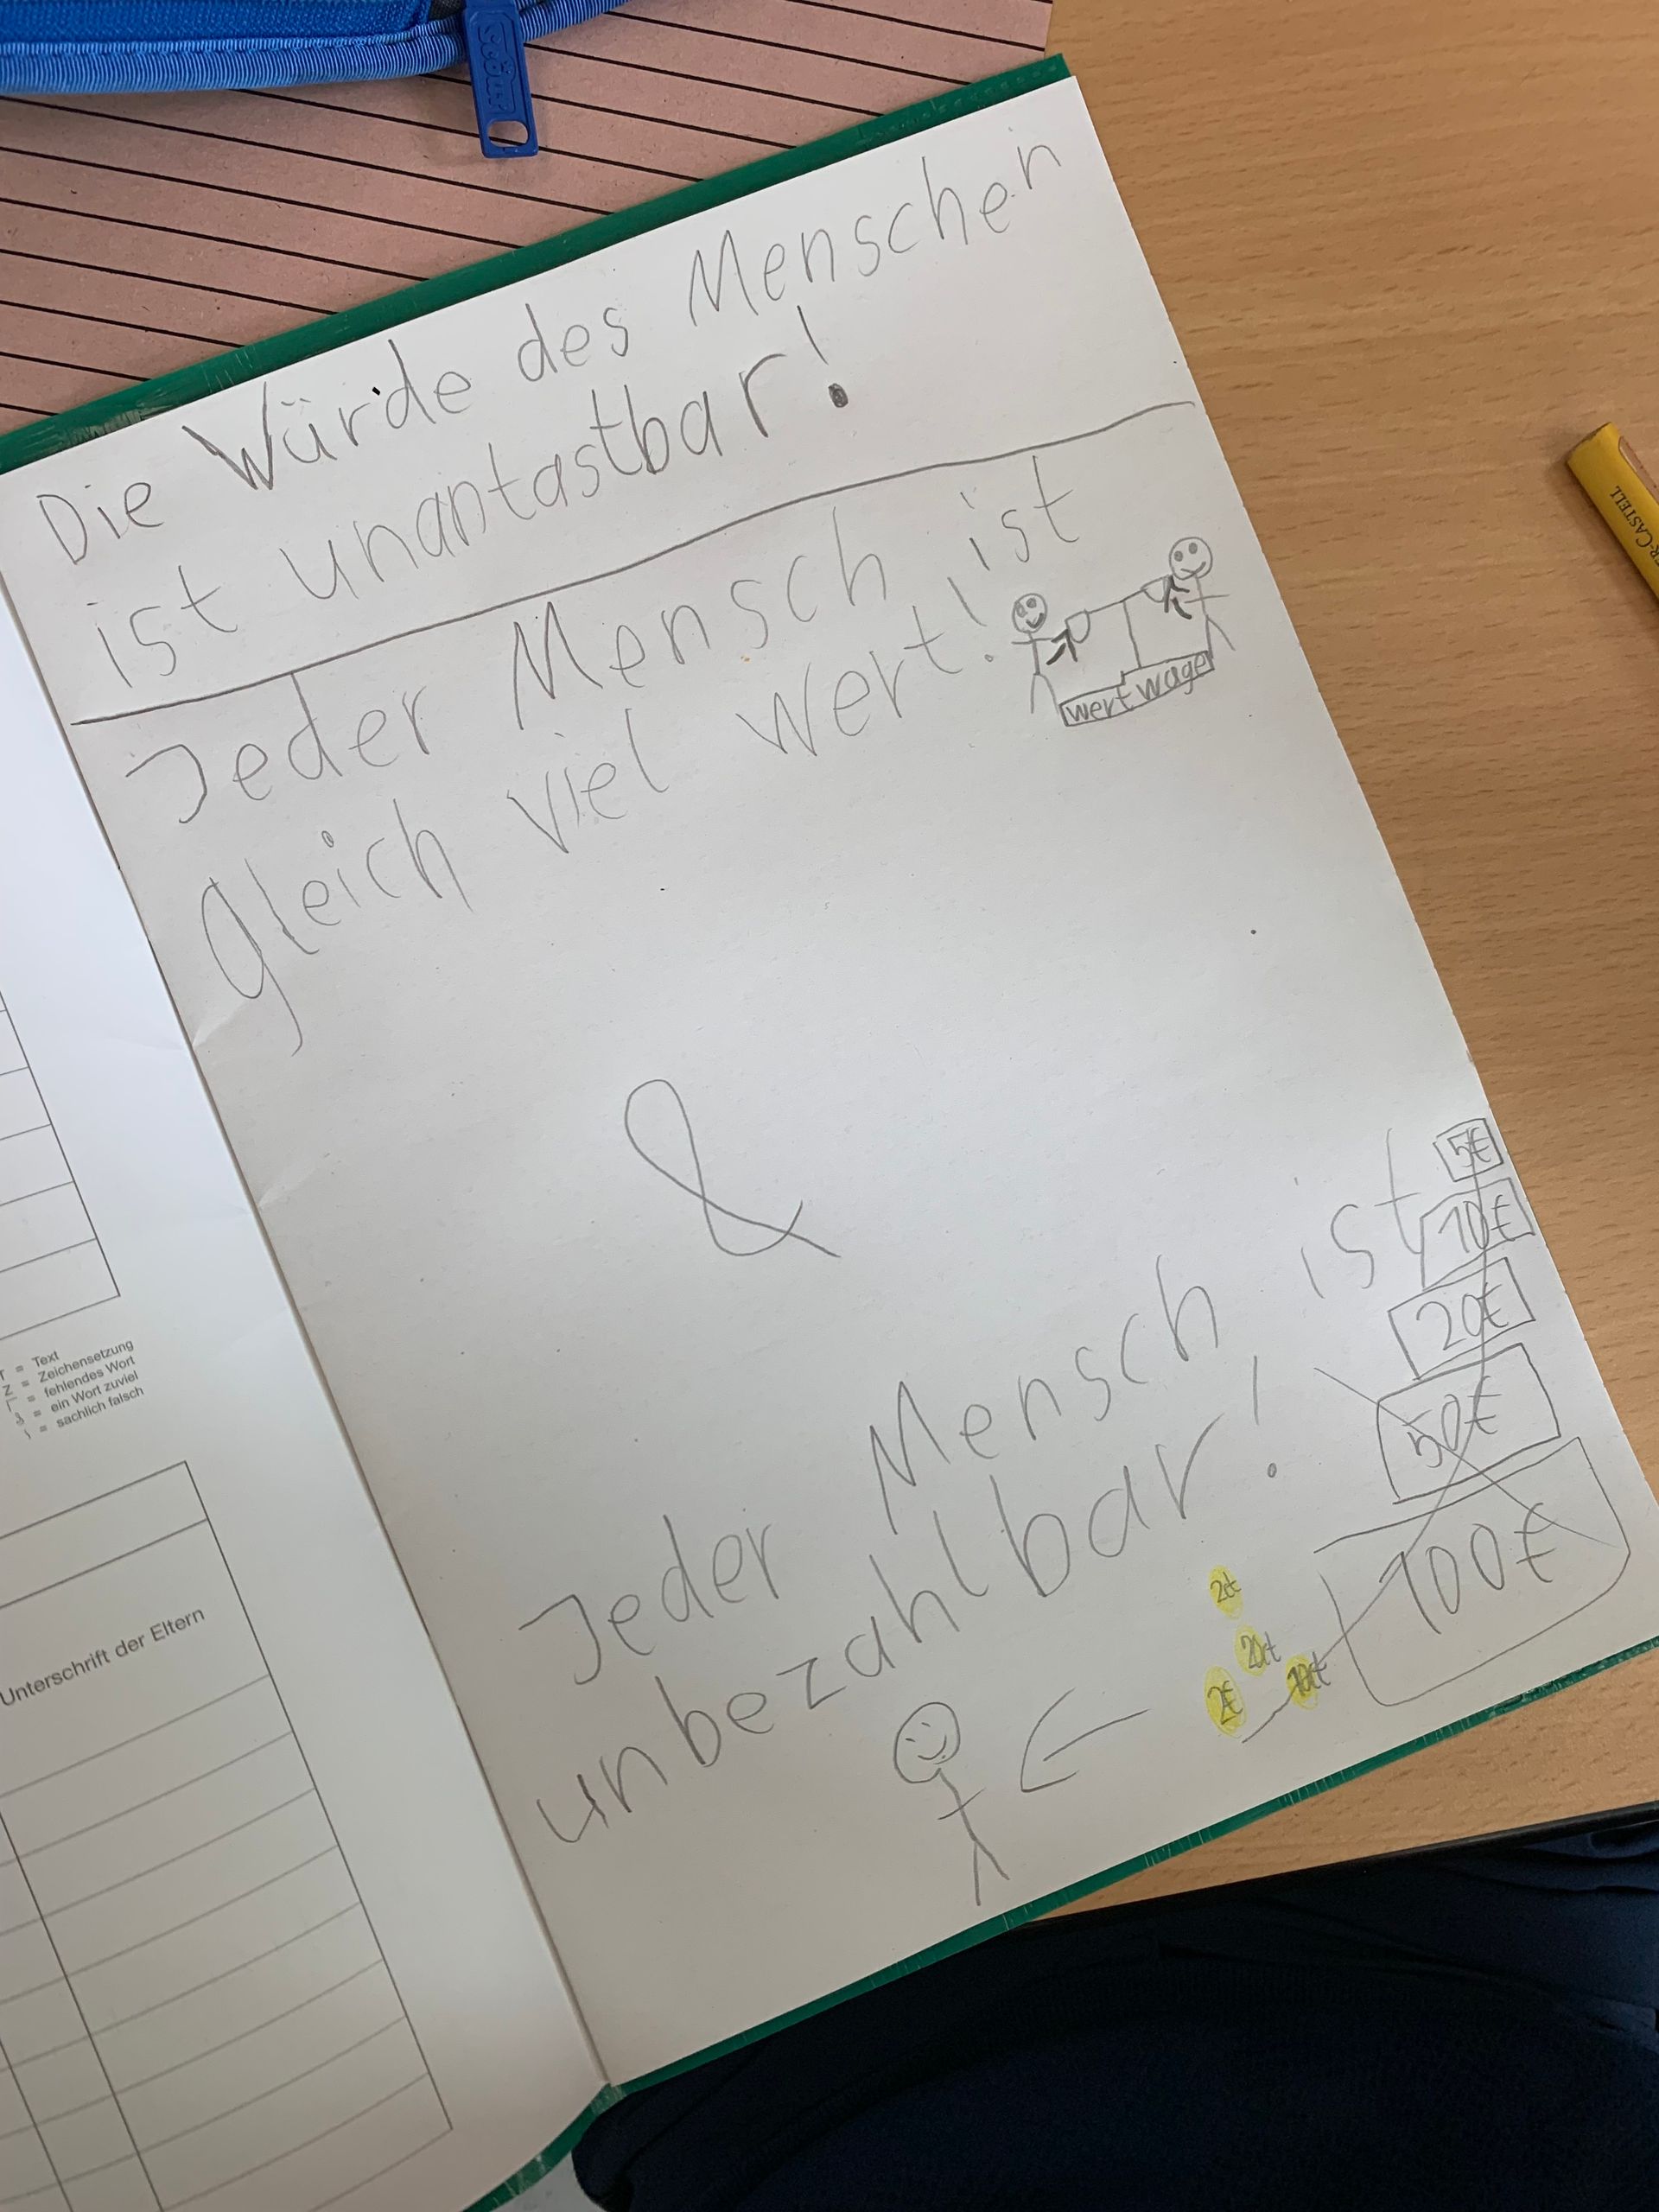 Scout
Die Würde des Menschen
ist unantastbar!
Jeder Mensch ist
gleich viel wert!
wertwage
&
Jeder Mensch ist
unbezahlbar!
5€
10€
20€
50€
100€
2ct
20ct
10ct
2€
= Text
Z = Zeichensetzung
Γ = fehlendes Wort
= ein Wort zuviel
\ = sachlich falsch
Unterschrift der Eltern
R-CASTELL